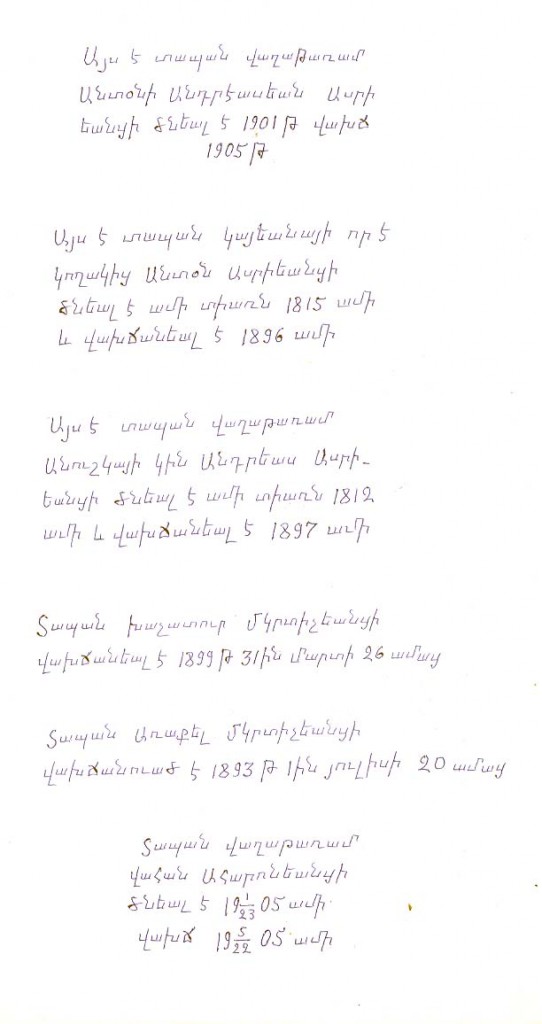 Այս է տապան վաղաթառամ
Անտօնի Անդրէասեան Ասրի
եանցի ծնեալ է 1901 թ վախճ
1905 թ
Այս է տապան կայեանայի որ է
կողակից Անտօն Ասրիեանցի
ծնեալ է ամի տիառն 1815 ամի
և վախճանեալ է 1896 ամի
Այս է տապան վաղաթառամ
Անուշկայի կին Անդրեաս Ասրի-
եանցի ծնեալ է ամի տիառն 1812
ամի և վախճանեալ է 1897 ամի
Տապան խաչատուր Մկրտիչեանցի
վախճանեալ է 1899 թ 31ին մարտի 26 ամաց
Տապան Առաքել Մկրտիչեանցի
վախճանուած է 1893 թ 1ին յուլիսի 20 ամաց
Տապան վաղաթառամ
վահան Ահարոնեանցի
ծնեալ է 19 1/23 05 ամի
վախճ 19 5/22 05 ամի